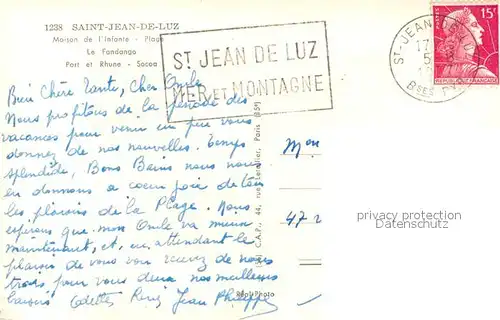 1238 SAINT-JEAN-DE-LUZ
Maison de l'Infante - Plage
Le Fandango
Port et Rhune - Socoa
ST JEAN DE LUZ
MER ET MONTAGNE
ST-JEAN-DE
BSES PYR
15F
REPUBLIQUE FRANÇAISE
Bien Chère Tante, Cher Oncle
Nous profitons de la période des
vacances pour venir un peu vous
donner de nos nouvelles. Temps
splendide, Bons Bains nous nous
en donnons a coeur joie de tous
les plaisirs de la Plage. Nous
espérons que mon Oncle va mieux
maintenant, et, en attendant le
plaisir de vous voir recevez de nous
trois pour vous deux nos meilleurs
baisers Odette René Jean Philippe
C.A.P., 44, rue Letellier, Paris (15e)
Réel Photo
Mon
47
privacy protection
Datenschutz